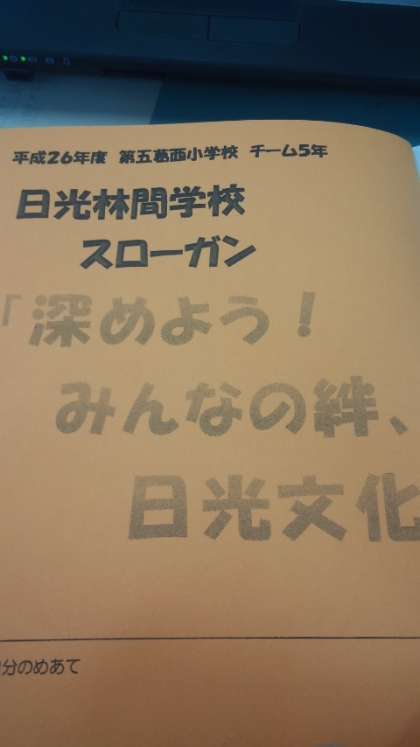 平成26年度 第五葛西小学校 チーム5年
日光林間学校
スローガン
「深めよう！
みんなの絆、
日光文化
分のめあて